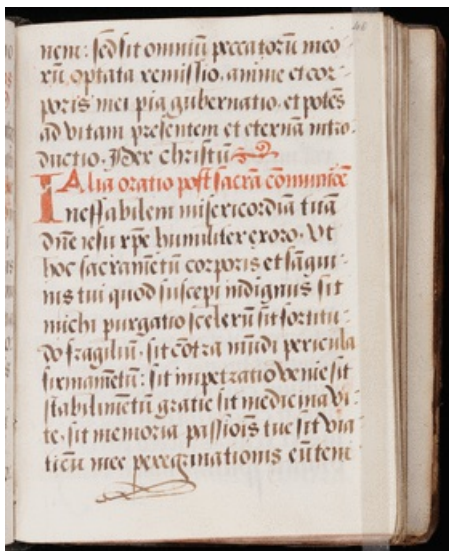 46
nem: sed sit omniū peccatorū meo
rū optata remissio. anime et cor-
poris mei pia gubernatio. et potēs
ad vitam presentem et eternā intro-
ductio. Per christū
Alia oratio post sacrā cōmunicē
Ineffabilem misericordiā tuā
dn̄e iesu xp̄e humiliter exoro. Vt
hoc sacramētū corporis et sāgui-
nis tui quod suscepi indignus sit
michi purgatio scelerū sit fortitu-
do fragiliū. sit cōtra mūdi pericula
firmamētū: sit impetratio venie sit
stabilimētū gratie sit medicina vi-
te. sit memoria passiōis tue sit via
ticū mee peregrinationis eūtem